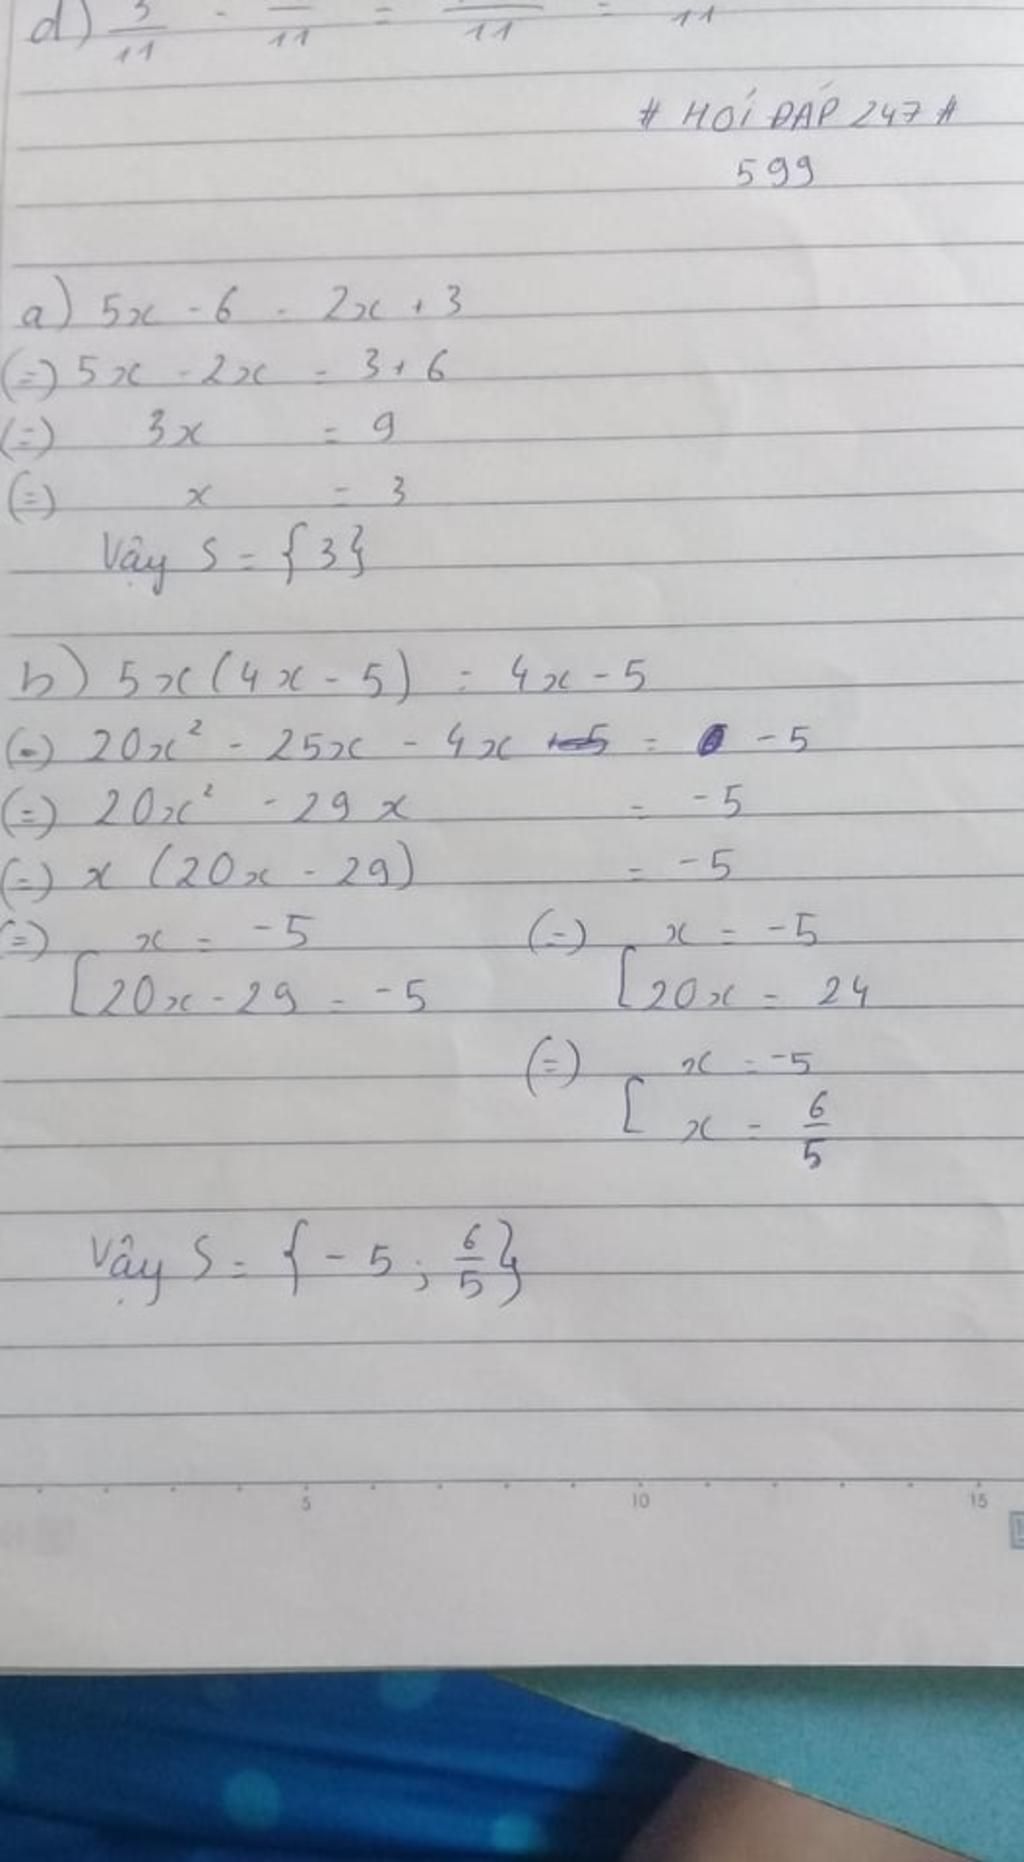 d) 3/11 - /11 = /11 = 11
# HỎI ĐÁP 247 #
599
a) 5x - 6 = 2x + 3
(=) 5x - 2x = 3 + 6
(=) 3x = 9
(=) x = 3
Vậy S = {3}
b) 5x(4x - 5) = 4x - 5
(=) 20x² - 25x - 4x = -5
(=) 20x² - 29x = -5
(=) x (20x - 29) = -5
(=) [ x = -5 (=) [ x = -5
20x - 29 = -5 20x = 24
(=) [ x = -5
x = 6/5
Vậy S = { -5 ; 6/5 }
5 10 15